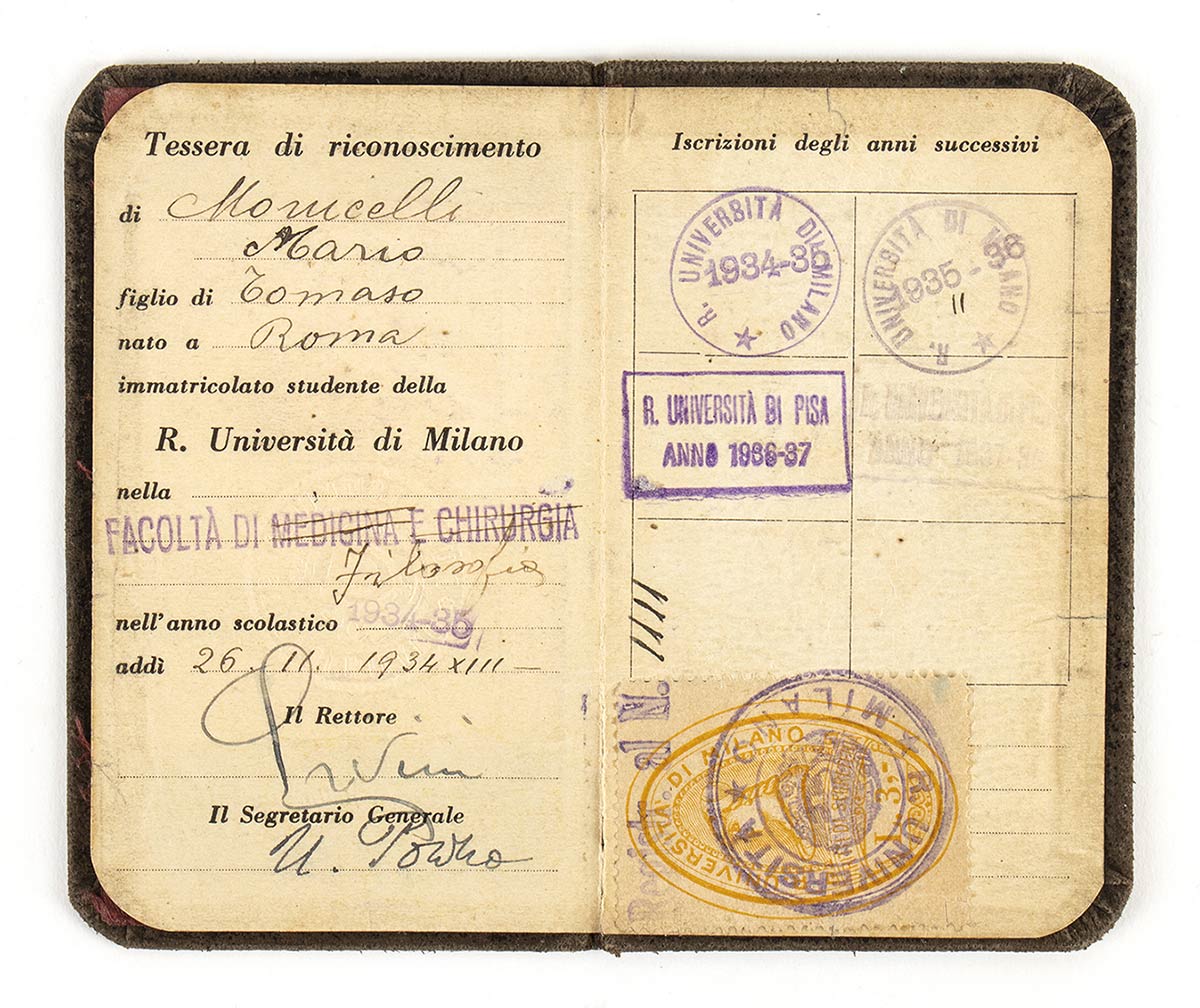 Tessera di riconoscimento
di Monicelli
Mario
figlio di Tomaso
nato a Roma
immatricolato studente della
R. Università di Milano
nella
FACOLTÀ DI MEDICINA E CHIRURGIA
Filosofia
nell'anno scolastico 1934-35
addì 26. 11. 1934 XIII —
Il Rettore
Il Segretario Generale
Iscrizioni degli anni successivi
R. UNIVERSITÀ DI MILANO
1934-35
R. UNIVERSITÀ DI MILANO
1935-36
11
R. UNIVERSITÀ DI PISA
ANNO 1936-37
R. UNIVERSITÀ DI
ANNO 1937-38
Regist. al N. 11111
UNIVERSITÀ DI MILANO
R. UNIVERSITÀ MILANO
L. 3.-